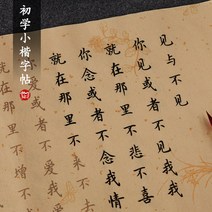 初学小楷字帖
见与不见
你见或者不见我我
就在那里不悲不喜
你念或者不念我情
就在那里不来不去
你爱或者不爱我
就在那里不增不